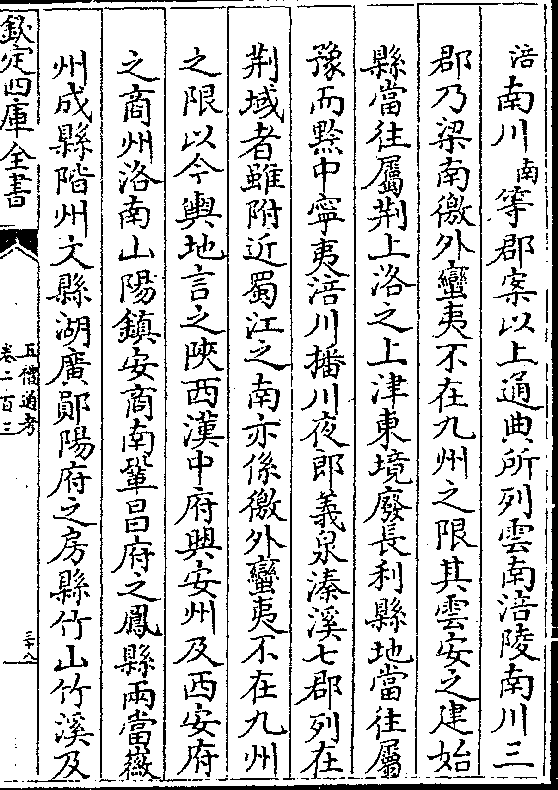 涪南川南等郡案以上通典所列雲南涪陵南川三
郡乃梁南徼外蠻夷不在九州之限其雲安之建始
縣當往屬荆上洛之上津東境廢長利縣地當往屬
豫而黔中寧夷涪川播川夜郎義泉溱溪七郡列在
荆域者雖附近蜀江之南亦係徼外蠻夷不在九州
之限以今輿地言之陜西漢中府興安州及西安府
之商州洛南山陽鎮安商南鞏昌府之鳳縣兩當徽
州成縣階州文縣湖廣鄖陽府之房縣竹山竹溪及
欽定四庫全書
五禮通考
卷二百三
三十八